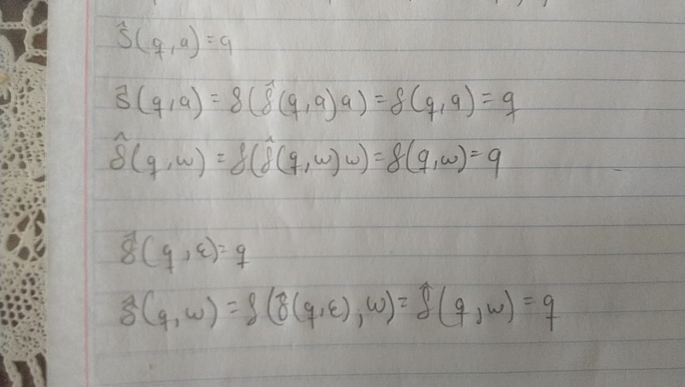 δ̂(q,a)=q
δ̂(q,a)=δ(δ̂(q,a)a)=δ(q,a)=q
δ̂(q,w)=δ(δ̂(q,w)w)=δ(q,w)=q
δ̂(q,ε)=q
δ̂(q,w)=δ(δ̂(q,ε),w)=δ̂(q,w)=q